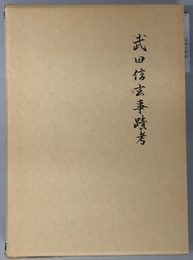 武田信玄事蹟考